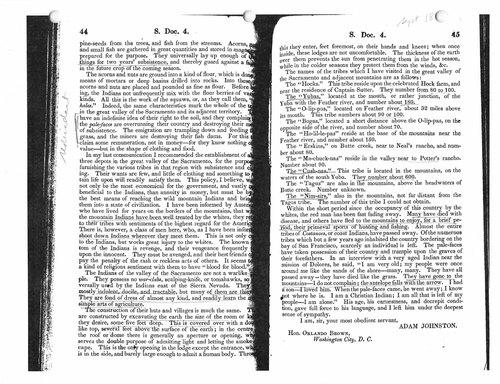 44 S. Doc. 4.
pine-seeds from the trees, and fish from the streams. Acorns,
and small fish are gathered in great quantities and stored in
prepared for the purpose. They universally lay up enough of
things for two years' subsistence, and thereby guard against a
in the future crop of the coming season.
The acorns and nuts are ground into a kind of flour, which is done
means of mortars or deep basins drilled into rocks. Into these
acorns and nuts are placed and pounded as fine as flour. Before
ing, the Indians not unfrequently mix with the flour berries of
kinds. All this is the work of the squaws, or, as they call them,
Indeed, the same characteristics mark the whole of the
in the great valley of the Sacramento and its adjacent territory.
have an indefinite idea of their right to the soil, and they complain
the pale-faces are overrunning their country and destroying their
of subsistence. The emigration are trampling down and feeding
grass, and the miners are destroying their fish dams. For this
claim some remuneration, not in money—for they know nothing
value—but in the shape of clothing and food.
In my last communication I recommended the establishment of
three depots in the great valley of the Sacramento, for the purpose
furnishing the various tribes in that region with subsistence and
ing. Their wants are few, and little of clothing and something to
tain life upon will readily satisfy them. This policy, I believe,
not only be the most economical for the government, and vastly
beneficial to the Indians, than annuity in money, but must be
the best means of reaching the wild mountain Indians and bring
them into a state of civilization. I have been informed by Americans
who have lived for years on the borders of the mountains, that
the mountain Indians have been well treated by the whites, they
to their tribes with sentiments of the highest regard for the Americans.
There is, however, a class of men here, who, as I have been informed,
shoot down Indians wherever they meet them. This is not only
to the Indians, but works great injury to the whites. The known
tom of the Indians is revenge, and their vengeance frequently
upon the innocent. They must be avenged, and their best friends
pay the penalty of the rash or reckless acts of others. It seems
a kind of religious sentiment with them to have "blood for blood."
The Indians of the valley of the Sacramento are not a warlike
ple. They possess no war-clubs, scalping knife, or tomahawk, so
versally used by the Indians east of the Sierra Nevada. They
mostly indolent, docile, and tractable, but many of them are
They are fond of dress of almost any kind, and readily learn the
simple arts of agriculture.
The construction of their huts and villages is much the same.
are constructed by excavating the earth the size of the room or
they desire, some five feet deep. This is covered over with a dome
like top, several feet above the surface of the earth; in the centre
the roof or dome there is generally an aperture or opening, which
serves the double purpose of admitting light and letting the smoke
cape. This is the only opening in the lodge except the entrance,
is in the side, and barely large enough to admit a human body.
S. Doc. 4. 45
this they enter, feet foremost, on their hands and knees; when once
inside, these lodges are not uncomfortable. The thickness of the earth
over them prevents the sun from penetrating them in the hot season,
while in the colder seasons they protect them from the winds, &c.
The names of the tribes which I have visited in the great valley of
the Sacramento and adjacent mountains are as follows:
The "Hocks." This tribe reside upon the celebrated Hock farm, and
near the residence of Captain Sutter. They number from 80 to 100.
The "Yubas," located at the mouth, or rather junction, of the
Yuba with the Feather river, and number about 180.
The "O-lip-pas," located on Feather river, about 32 miles above
its mouth. This tribe numbers about 90 or 100.
The "Bogas," located a short distance above the O-lip-pas, on the
opposite side of the river, and number about 70.
The "Ho-lil-le-pas" reside at the base of the mountains near the
Feather river, and number about 150.
The "Erskins," on Butte creek, near to Neal's rancho, and num-
ber about 80.
The "Ma-chuck-nas" reside in the valley near to Potter's rancho.
Number about 90.
The "Cush-nas." This tribe is located in the mountains, on the
waters of the south Yuba. They number about 600.
The "Tagus" are also in the mountains, above the headwaters of
Butte creek. Number unknown.
The "Nim-sues" also in the mountains, not far distant from the
Tagus tribe. The number of this tribe I could not obtain.
Within the short period since the occupancy of this country by the
whites, the red man has been fast fading away. Many have died with
disease, and others have fled to the mountains to enjoy, for a brief pe-
riod, their primeval sports of hunting and fishing. Almost the entire
tribes of Costanoes, or coast Indians, have passed away. Of the numerous
tribes which but a few years ago inhabited the country bordering on the
bay of San Francisco, scarcely an individual is left. The pale-faces
have taken possession of their country and trample upon the graves of
their forefathers. In an interview with a very aged Indian near the
mission of Dolores, he said, "I am very old; my people were once
around me like the sands of the shore—many, many. They have all
passed away—they have died like the grass. They have gone to the
mountains—I do not complain; the antelope falls with the arrow. I had
a son—I loved him. When the pale-faces came, he went away; I know
not where he is. I am a Christian Indian; I am all that is left of my
people—I am alone." His age, his earnestness, and decrepit condi-
tion, gave full force to his language, and I left him under the deepest
sense of sympathy.
I am, sir, your most obedient servant,
ADAM JOHNSTON.
Hon. Orlando Brown,
Washington City, D. C.